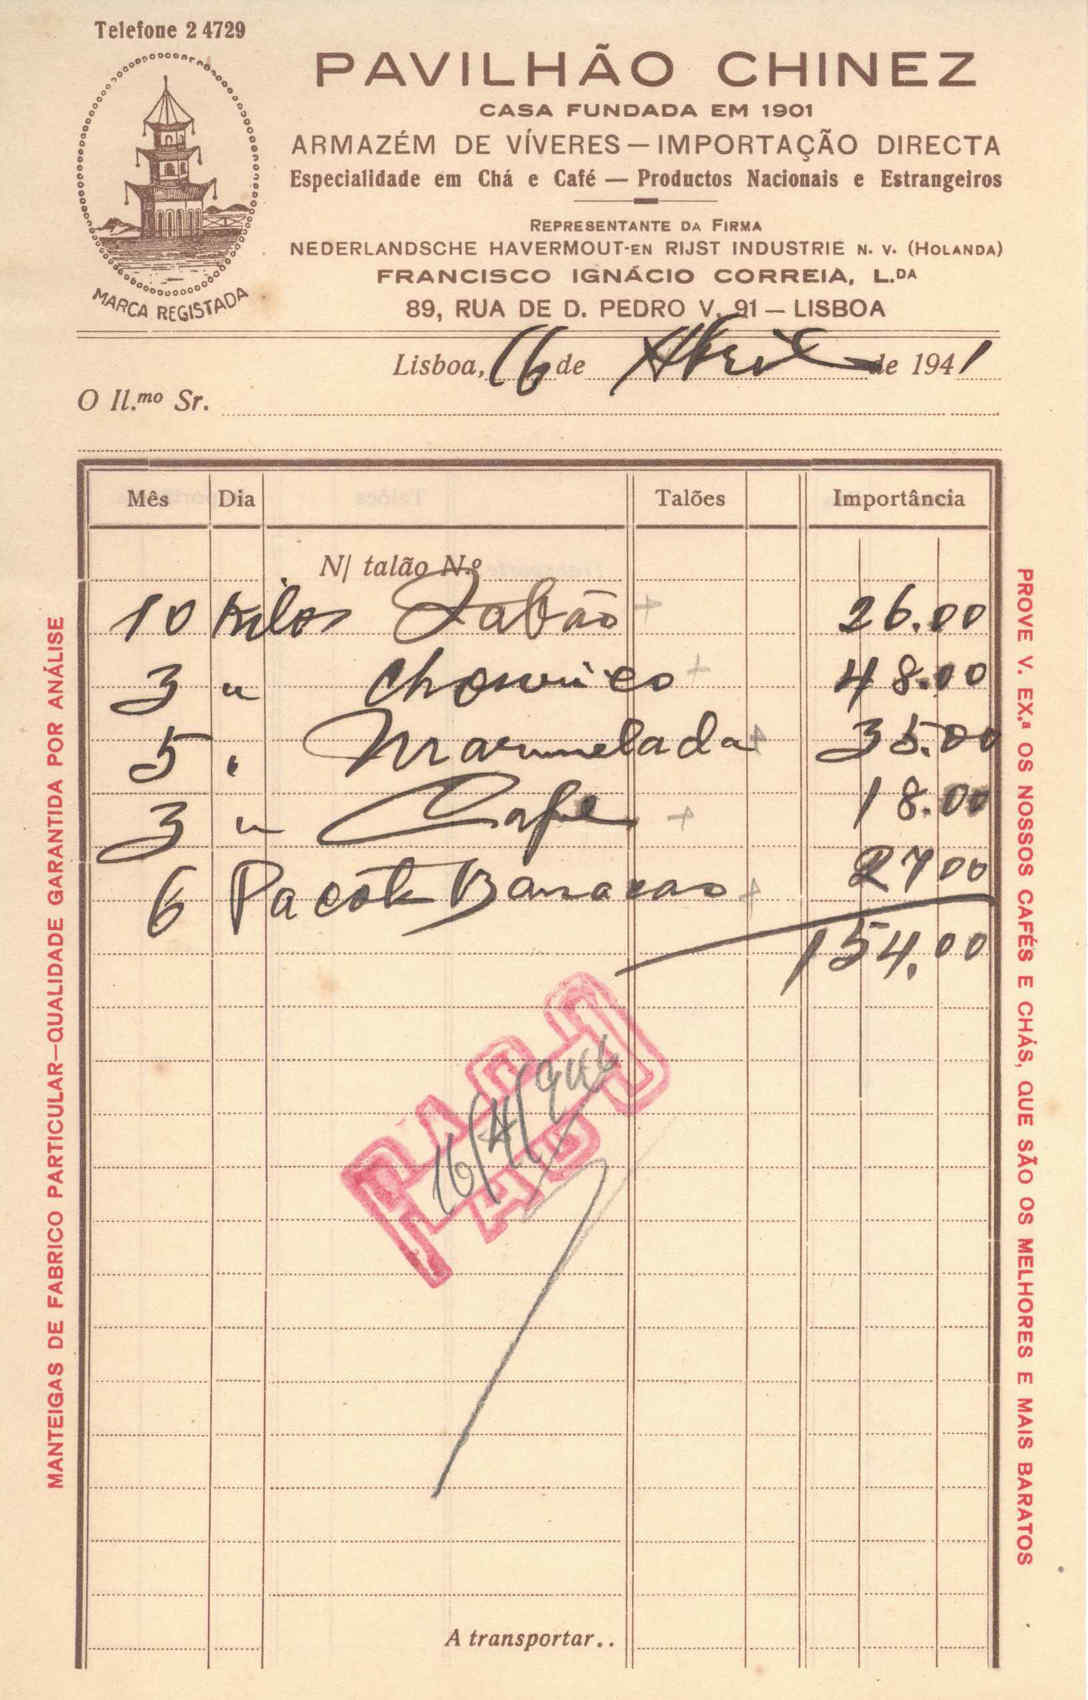 Telefone 2 4729
MARCA REGISTADA
PAVILHÃO CHINEZ
CASA FUNDADA EM 1901
ARMAZÉM DE VÍVERES — IMPORTAÇÃO DIRECTA
Especialidade em Chá e Café — Productos Nacionais e Estrangeiros
REPRESENTANTE DA FIRMA
NEDERLANDSCHE HAVERMOUT-EN RIJST INDUSTRIE N. V. (HOLANDA)
FRANCISCO IGNÁCIO CORREIA, L.DA
89, RUA DE D. PEDRO V, 91 — LISBOA
Lisboa, 16 de Abril de 1941
O Il.mo Sr.
Mês Dia Talões Importância
N/ talão N.º
10 Kilos Sabão 26.00
3 " Chouriço 48.00
5 " Marmelada 35.00
3 " Café 18.00
6 Pacote 27.00
154.00
PAGO
16/4/
A transportar..
MANTEIGAS DE FABRICO PARTICULAR—QUALIDADE GARANTIDA POR ANÁLISE
PROVE V. EX.ª OS NOSSOS CAFÉS E CHÁS, QUE SÃO OS MELHORES E MAIS BARATOS